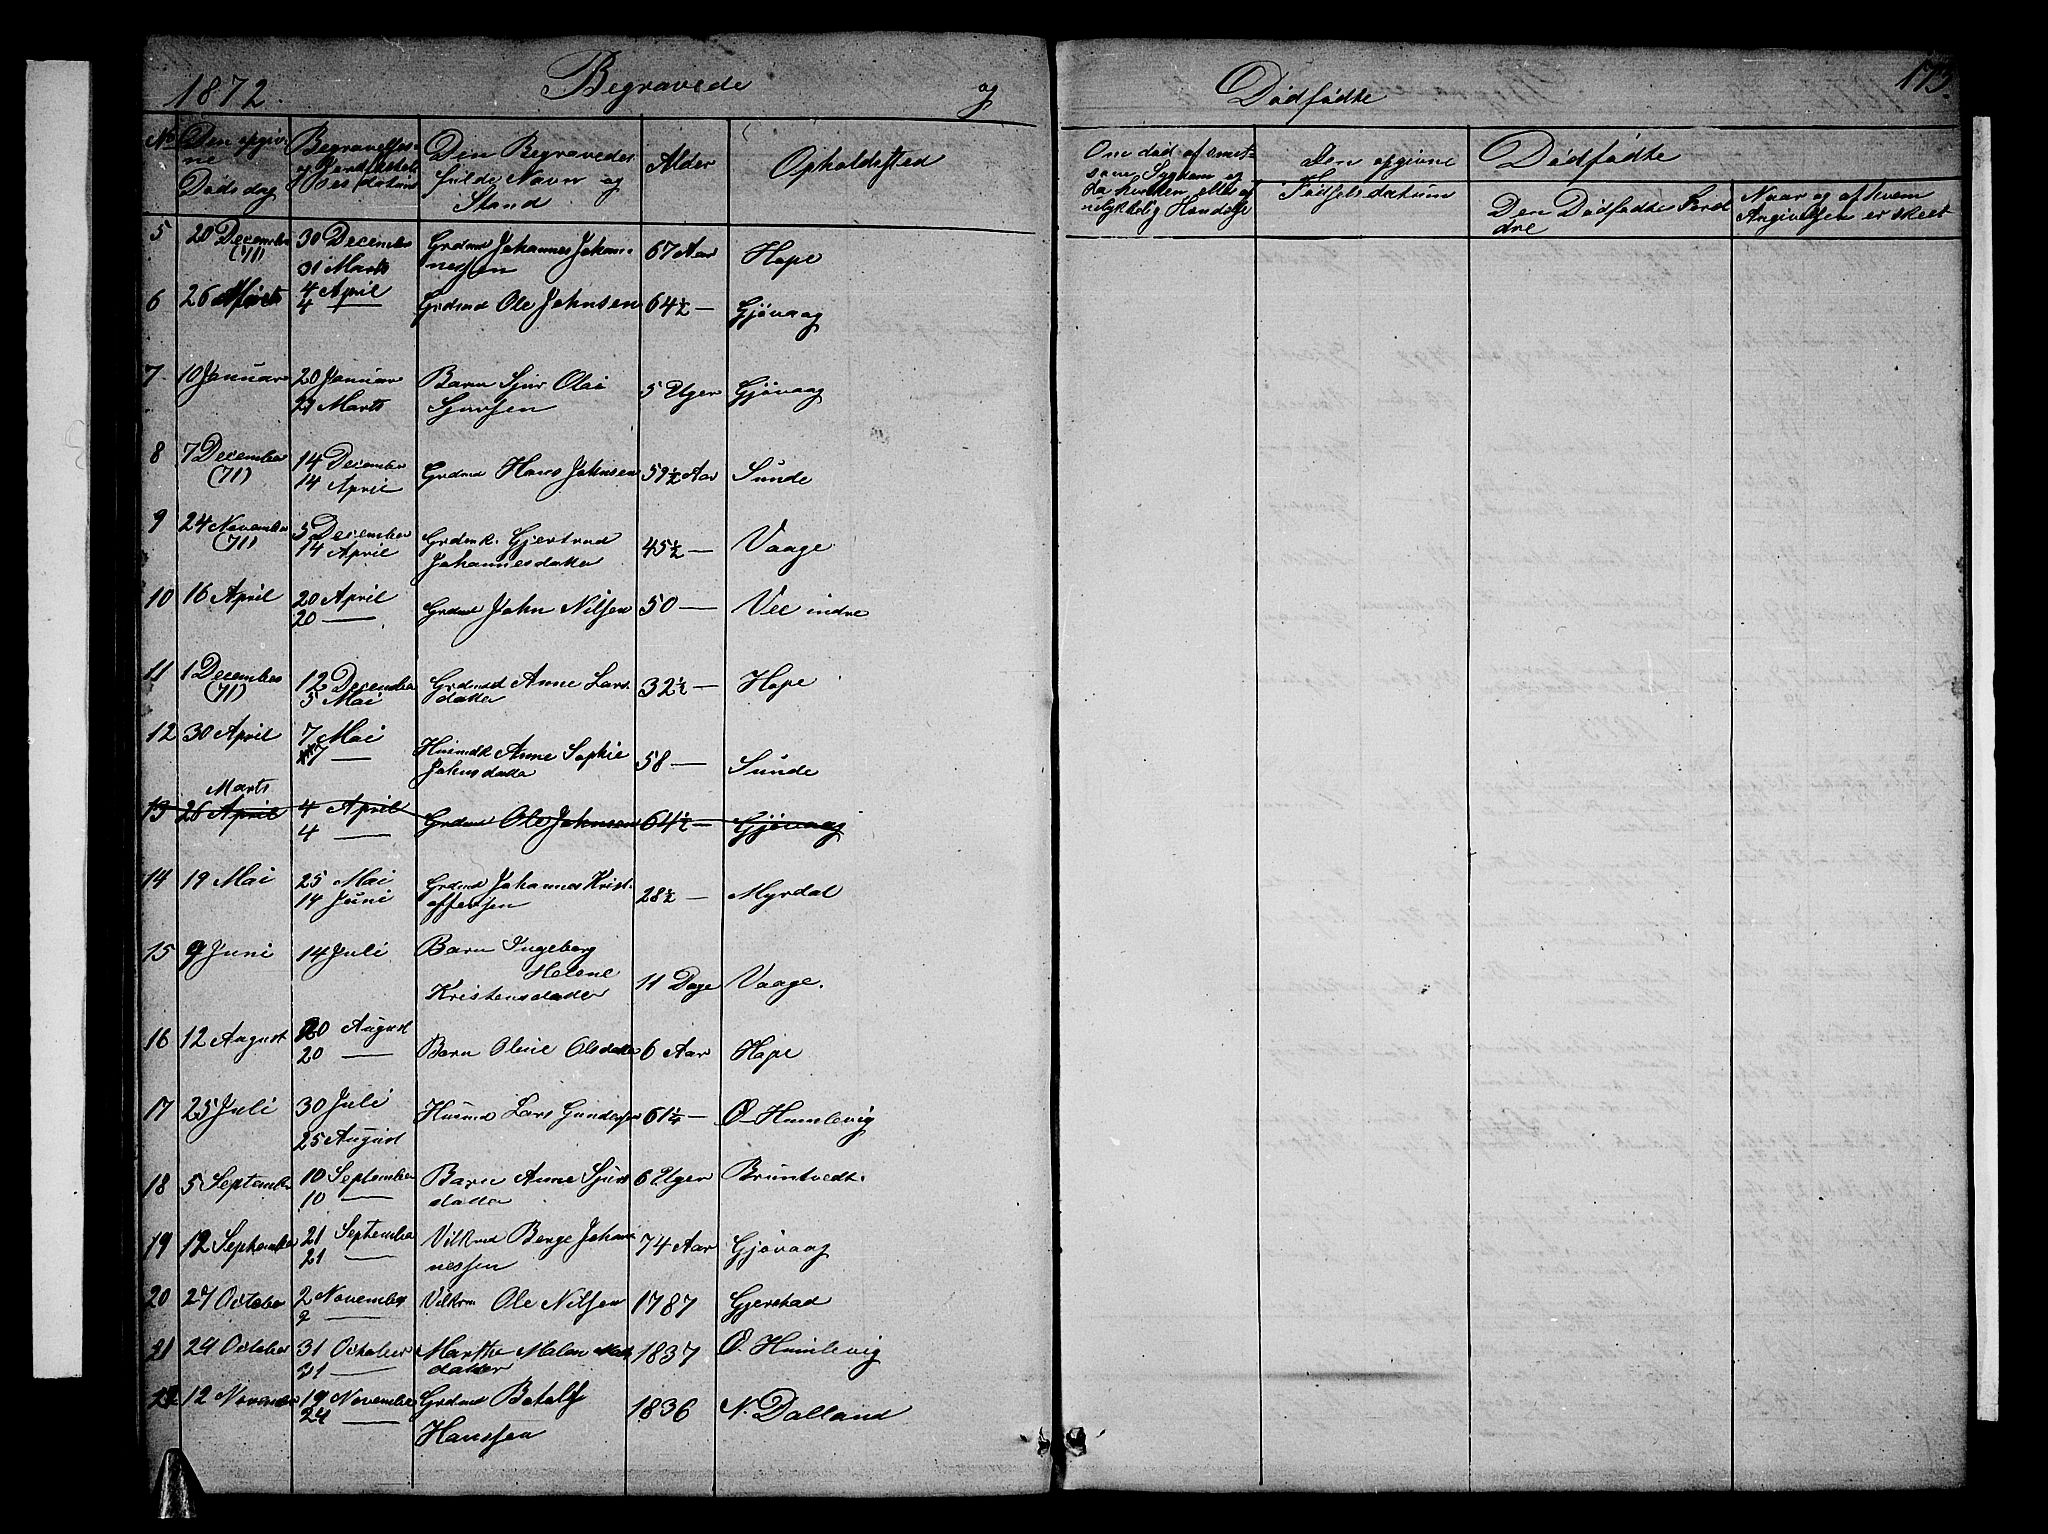 1872. Begravede og Dødfødte 173.
No Den opgivne Dødsdag Begravelses- og Jordfæstelses datum Den Begravedes fulde Navn og Stand Alder Opholdssted
Om død af smitsom Sygdom og da hvilken, eller af ulykkelig Hændelse Den opgivne Fødselsdatum Dødfødte
Den Dødfødtes Foreldre Naar og af hvem Angivelsen er skeet
5 20 December 30 December Grdmd Johannes Johan- 67 Aar Hope
(71) 31 Marts nessen
6 26 Marts 4 April Grdmd Ole Johnsen 64½ — Gjøvaag
4 —
7 10 Januar 20 Januar Barn Sjur Olai 5 Uger Gjøvaag
Marts Sjursen
8 7 December 14 December Grdmd Hans Johnsen 59½ Aar Sunde
(71) 14 April
9 24 November 5 December Grdmk. Gjertrud 45½ — Vaage
(71) 14 April Johannesdatter
10 16 April 20 April Grdmd John Nilsen 50 — Vee indre
20 —
11 1 December 12 December Grdmd Anne Lars 32½ — Hope
(71) 5 Mai datter
12 30 April 7 Mai Husmdk Anne Sophie 58 — Sunde
7 — Johnsdatter
Marts
13 26 April 4 April Grdmd Ole Johnsen 64½ — Gjøvaag
4 —
14 19 Mai 25 Mai Grdmd Johannes Krist- 28½ — Myrdal
14 Juni offersen
15 9 Juni 14 Juli Barn Ingeborg
Helene
Kristensdatter 11 Dage Vaage.
16 12 August 20 August
20 — Barn Oline Olsdatter 6 Aar Hope
17 25 Juli 30 Juli Husmd Lars Gundersen 61¼ — Ø Humlevig
25 August
18 5 September 10 September Barn Anne Sjurs 6 Uger Bruntvedt.
10 — datter
19 12 September 21 September Vilkmd Berge Johan 74 Aar Gjøvaag
21 — nessen
20 27 October 2 November Vilkm Ole Nilsen 1787 Gjerstad
2 —
21 24 October 31 October Marthe Malen 1837 Ø. Humlevig
31 — datter
22 12 November 19 November Grdmd Botolf 1836 N. Dalland
24 — Hanssen